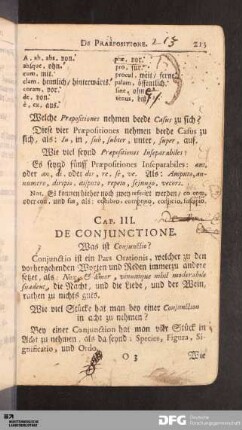 DE PRÆPOSITIONE. 213 215
A. ab. abs. von.
absque, ohn.
cum. mit.
clam. heimlich/ hinterwärts.
coram, vor.
de. von.
è, ex, aus.
præ. vor.
pro. für.
procul, weit/ ferne.
palam. öffentlich.
sine, ohne
tenus, biß
Welche Præpositiones nehmen beede Casus zu sich?
Diese vier Præpositiones nehmen beede Casus zu
sich/ als: In, in, sub, subter, unter, super, auf.
Wie viel seynd Præpositiones Inseparabiles?
Es seynd fünff Præpositiones Inseparabiles: am,
oder an, di, oder dis, re, se, ve. Als: Amputo,
anumero, dirigo, disputo, repeto, sejungo, vecors.
CAP. III.
DE CONJUNCTIONE.
Was ist Conjunctio?
Conjunctio ist ein Pars Orationis, welcher zu den
vorhergehenden Worten und Reden immerzu andere
setzet, als: Nox, & amor, vinumque nihil moderabile
suadent, die Nacht, und die Liebe, und der Wein,
rathen zu nichts guts.
Wie viel Stücke hat man bey einer Conjunction
in acht zu nehmen?
Bey einer Conjunction hat man vier Stück in
Acht zu nehmen, als da seynd: Species, Figura, Si-
gnificatio, und Ordo.
O 3 Wie
DFG Deutsche
Forschungsgemeinschaft